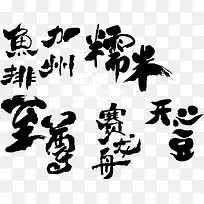 魚排
加州
糯米
至尊
赛龙舟
天心豆